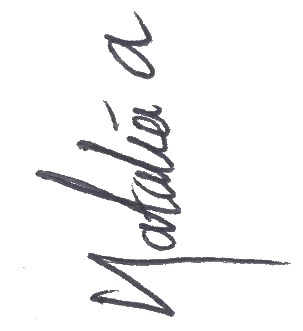 Natalia a